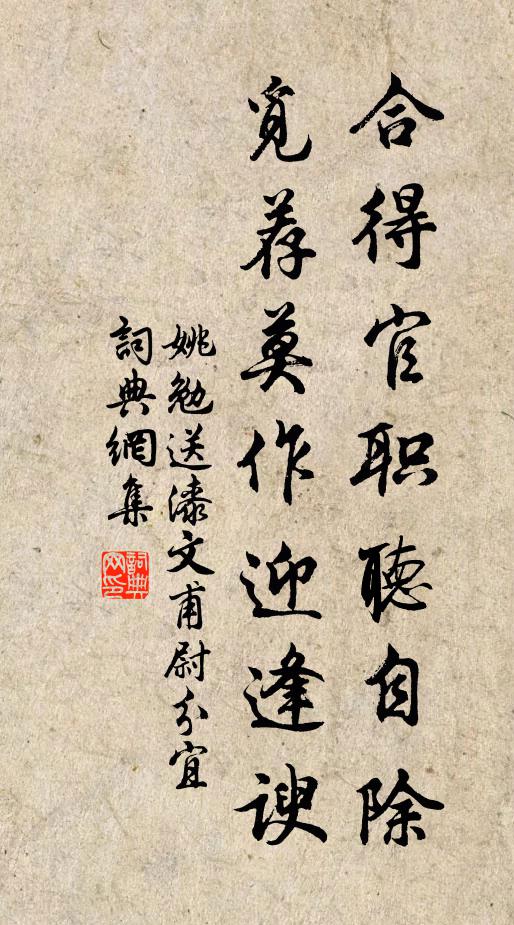 合得官职聽自除
覓荐莫作迎逢諛
姚勉送漆文甫尉分宜
詞典網集
詞典
网印